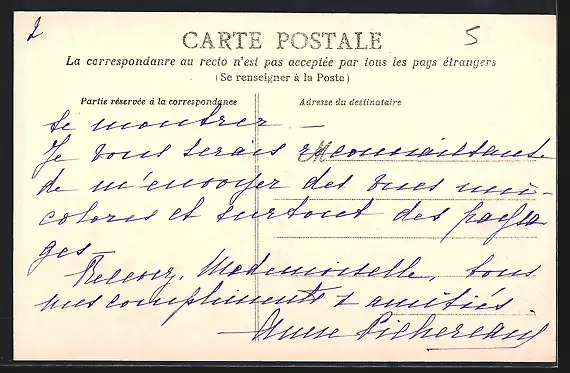 2
5
CARTE POSTALE
La correspondanre au recto n'est pas acceptée par tous les pays étrangers
(Se renseigner à la Poste)
Partie réservée à la correspondance
Adresse du destinataire
se montrer —
Je vous serais reconnaissante
de m'envoyer des vues uni-
colores et surtout des paysa
ges —
Recevez, Mademoiselle, tous
mes compliments & amitiés.